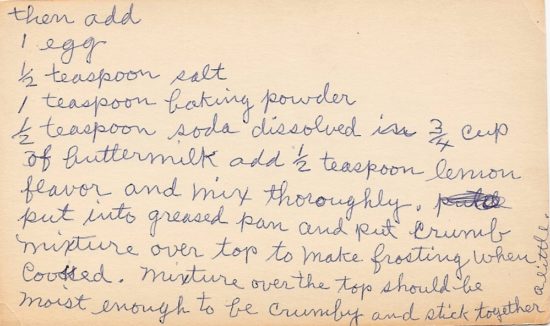 then add
1 egg
½ teaspoon salt
1 teaspoon baking powder
½ teaspoon soda dissolved in ¾ cup
of buttermilk add ½ teaspoon lemon
flavor and mix thoroughly.
put into greased pan and put crumb
mixture over top to make frosting when
Mixture over the top should be
moist enough to be crumby and stick together
a little.